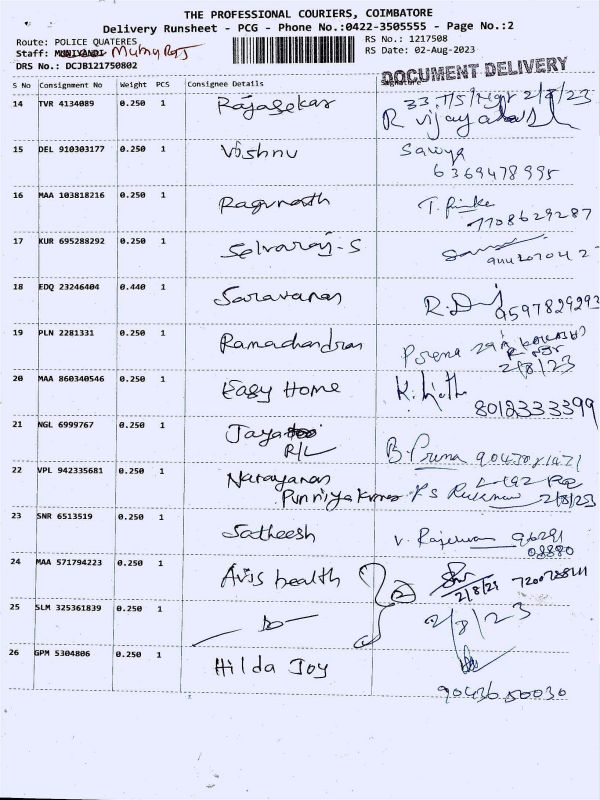 THE PROFESSIONAL COURIERS, COIMBATORE
Delivery Runsheet - PCG - Phone No.:0422-3505555 - Page No.:2
Route: POLICE QUATERES RS No.: 1217508
Staff: RS Date: 02-Aug-2023
DRS No.: DCJB121750802 DOCUMENT DELIVERY
S No Consignment No Weight PCS Consignee Details Signature
14 TVR 4134089 0.250 1 Rajasekar 2/8/23
R Vijaya
15 DEL 910303177 0.250 1 Vishnu Sawya
6369478995
16 MAA 103818216 0.250 1 Ragunath
7708629287
17 KUR 695288292 0.250 1 Selvaraj-S
18 EDQ 23246404 0.440 1 Saravanan
9597829293
19 PLN 2281331 0.250 1 Ramachandran
2/8/23
20 MAA 860340546 0.250 1 Easy Home
8012333399
21 NGL 6999767 0.250 1 Jaya
R/L
22 VPL 942335681 0.250 1 Narayanan
Punniyakumar 2/8/23
23 SNR 6513519 0.250 1 Satheesh V. 96291
08880
24 MAA 571794223 0.250 1 Avis health 2
25 SLM 325361839 0.250 1 - Do - 2/8/23
26 GPM 5304806 0.250 1 Hilda Joy
9043650030